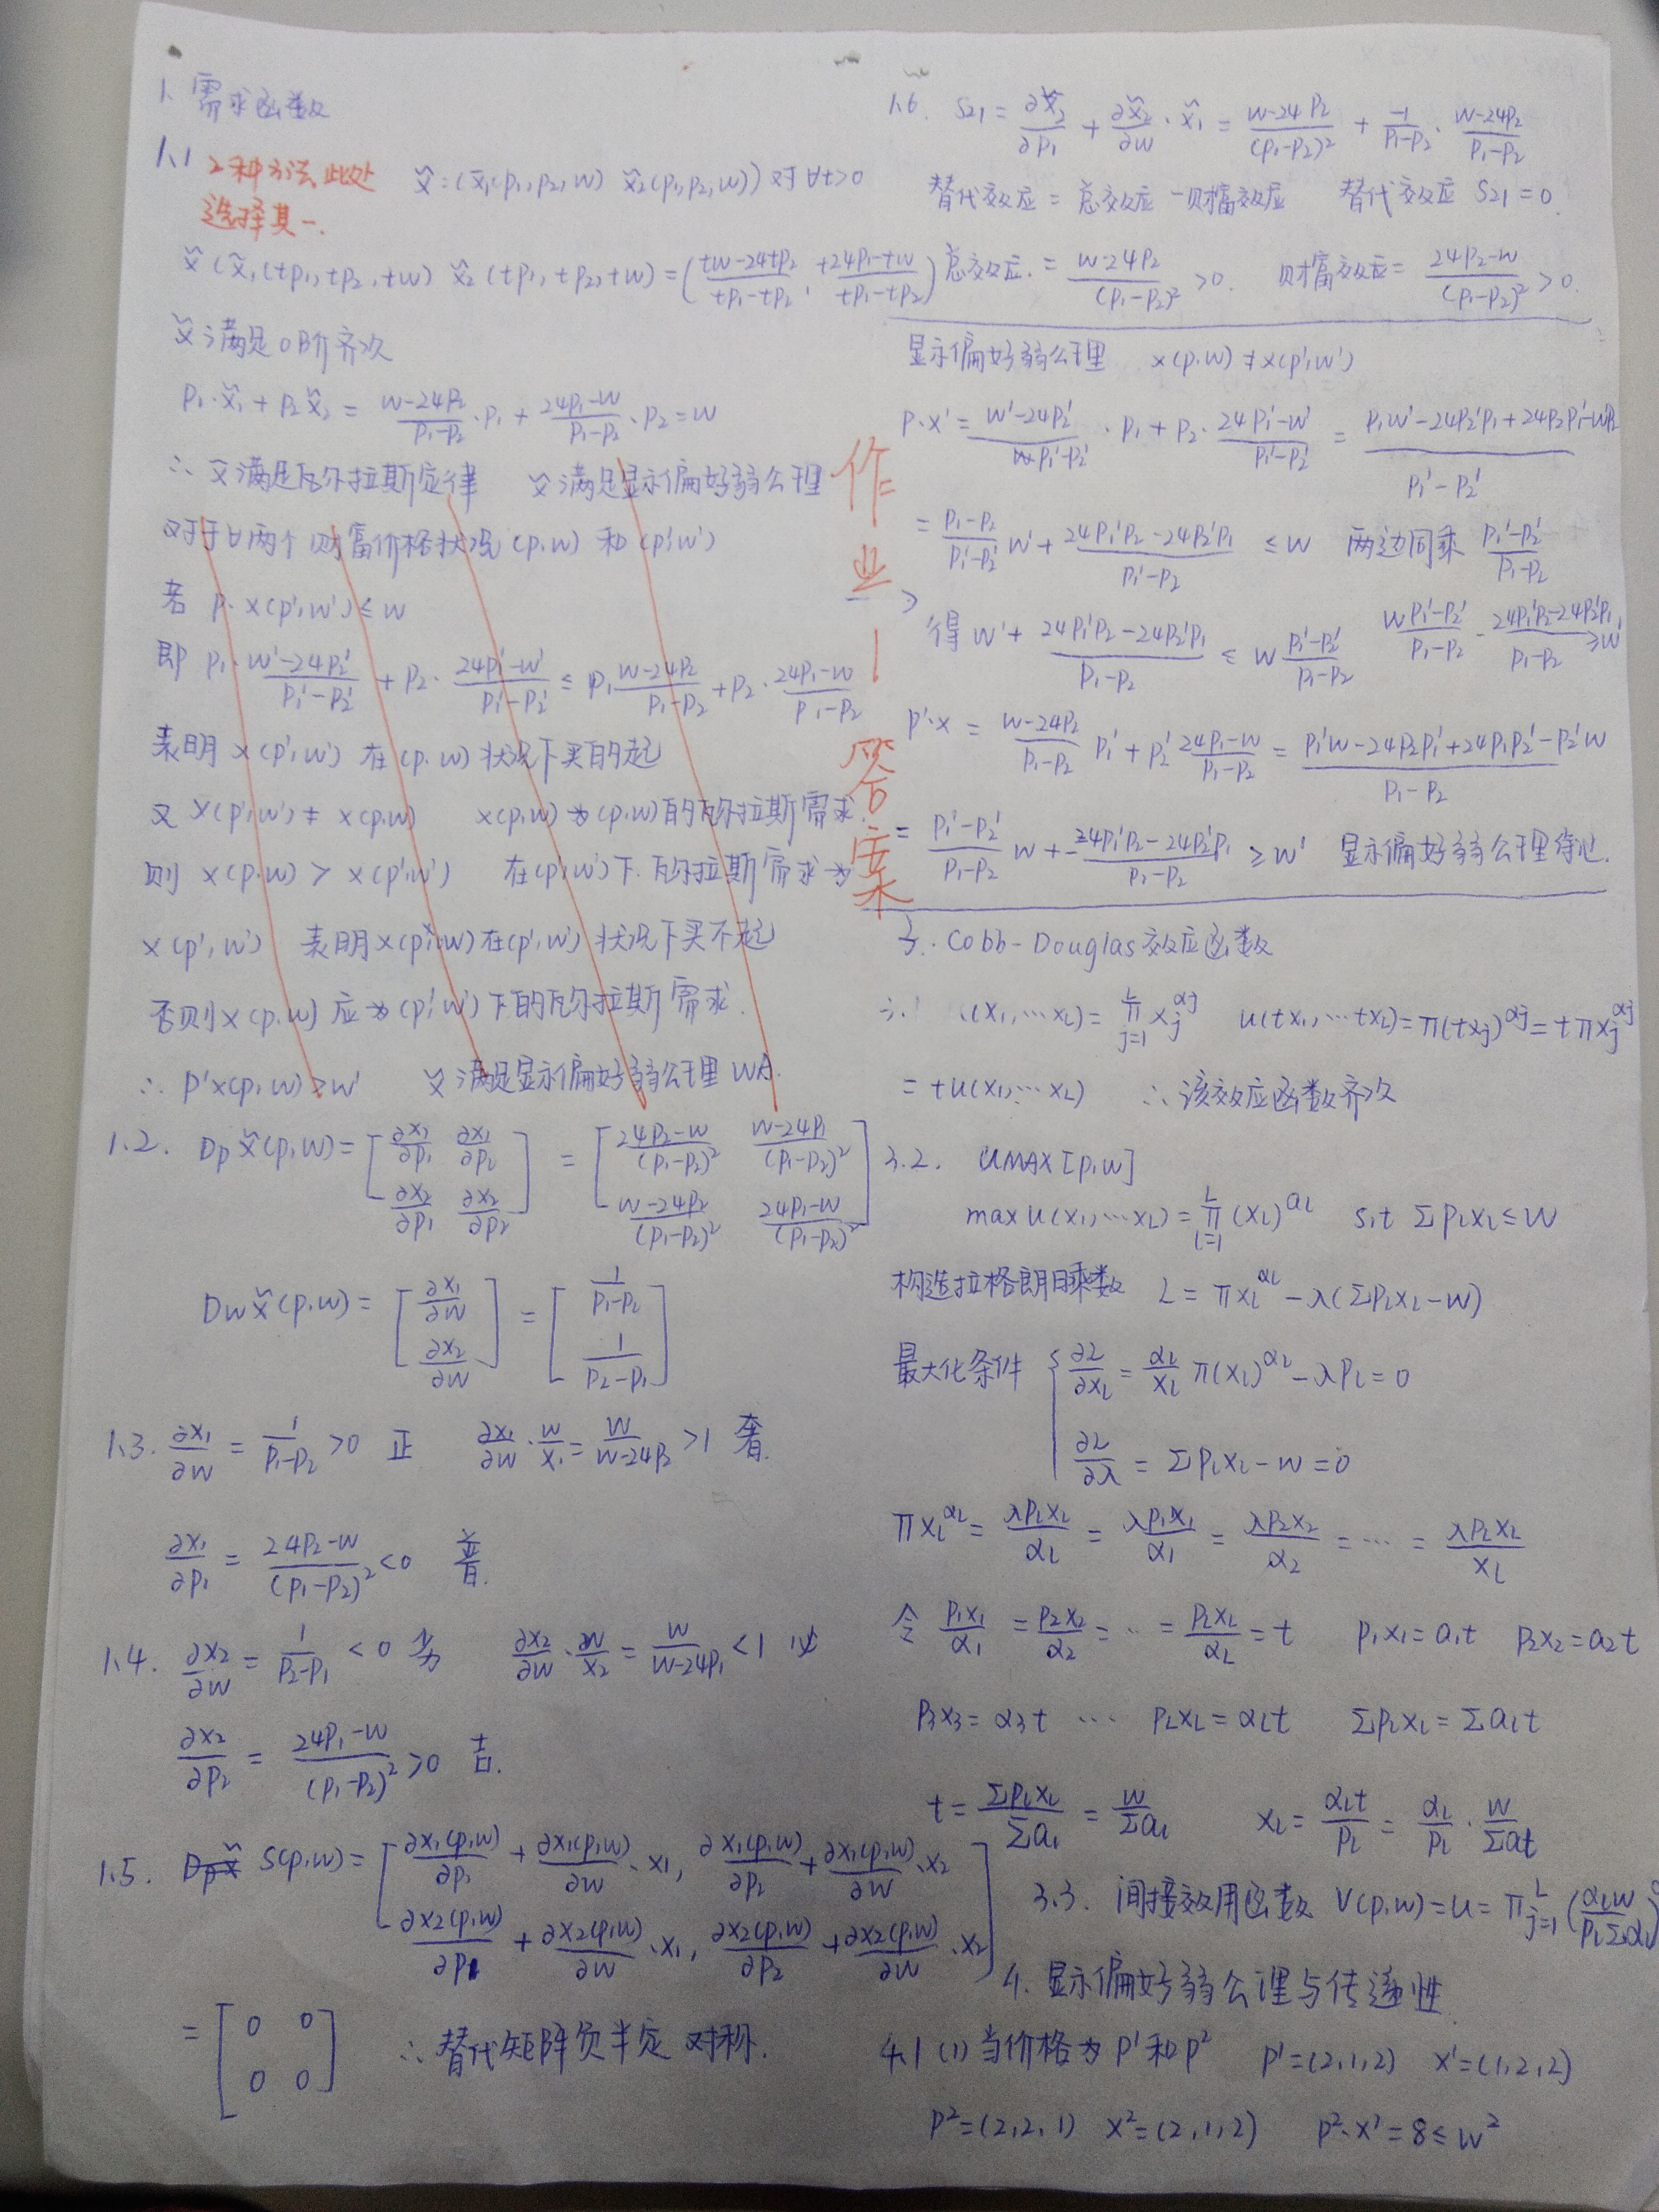 1. 需求函数
1.1 2种方法,此处选择其一.
x̌=(x̌₁(p₁,p₂,w) x̌₂(p₁,p₂,w)) 对∀t>0
x̌(x̌₁(tp₁,tp₂,tw) x̌₂(tp₁,tp₂,tw)=((tw-24tp₂)/(tp₁-tp₂), (t24p₁-tw)/(tp₁-tp₂))
x̌满足0阶齐次
p₁·x̌₁+p₂x̌₂ = (w-24p₂)/(p₁-p₂)·p₁ + (24p₁-w)/(p₁-p₂)·p₂=w
∴ x̌满足瓦尔拉斯定律 x̌满足显示偏好弱公理
对于∀两个财富价格状况(p,w) 和 (p',w')
若 p·x(p',w')≤w
即 p₁·(w'-24p₂')/(p₁'-p₂') + p₂·(24p₁'-w')/(p₁'-p₂') ≤ p₁(w-24p₂)/(p₁-p₂)+p₂·(24p₁-w)/(p₁-p₂)
表明 x(p',w') 在(p,w)状况下买的起
又 x(p',w')≠x(p,w) x(p,w)为(p,w)的瓦尔拉斯需求
则 x(p,w) > x(p',w') 在(p',w')下,瓦尔拉斯需求为
x(p',w') 表明x(p,w)在(p',w')状况下买不起
否则x(p,w)应为(p',w')下的瓦尔拉斯需求.
∴ p'x(p,w)>w' x̌满足显示偏好弱公理WA.
1.2. Dp x̌(p,w)=[∂x₁/∂p₁ ∂x₁/∂p₂; ∂x₂/∂p₁ ∂x₂/∂p₂] = [(24p₂-w)/(p₁-p₂)² (w-24p₁)/(p₁-p₂)²; (w-24p₂)/(p₁-p₂)² (24p₁-w)/(p₁-p₂)²]
Dw x̌(p,w)= [∂x₁/∂w; ∂x₂/∂w] = [1/(p₁-p₂); 1/(p₂-p₁)]
1.3. ∂x₁/∂w = 1/(p₁-p₂) >0 正 ∂x₁/∂w·w/x₁=w/(w-24p₂)>1 奢.
∂x₁/∂p₁ = (24p₂-w)/(p₁-p₂)²<0 普.
1.4. ∂x₂/∂w = 1/(p₂-p₁) <0 劣 ∂x₂/∂w·w/x₂=w/(w-24p₁)<1 必
∂x₂/∂p₂ = (24p₁-w)/(p₁-p₂)²>0 吉.
1.5. S(p,w)=[∂x₁(p,w)/∂p₁+∂x₁(p,w)/∂w·x₁, ∂x₁(p,w)/∂p₂+∂x₁(p,w)/∂w·x₂; ∂x₂(p,w)/∂p₁+∂x₂(p,w)/∂w·x₁, ∂x₂(p,w)/∂p₂+∂x₂(p,w)/∂w·x₂]
= [0 0; 0 0] ∴替代矩阵负半定 对称.
作业一答案
1.6. S₂₁= ∂x̌₂/∂p₁ + ∂x̌₂/∂w·x̌₁ = (w-24p₂)/(p₁-p₂)² + -1/(p₁-p₂)·(w-24p₂)/(p₁-p₂)
替代效应=总效应-财富效应 替代效应 S₂₁=0.
总效应.=(w-24p₂)/(p₁-p₂)²>0. 财富效应=(24p₂-w)/(p₁-p₂)²>0.
显示偏好弱公理 x(p,w)≠x(p',w')
p·x'=(w'-24p₂')/(p₁'-p₂')·p₁+p₂·(24p₁'-w')/(p₁'-p₂') = (p₁w'-24p₂'p₁+24p₂p₁'-w'p₂)/(p₁'-p₂')
=(p₁-p₂)/(p₁'-p₂') w'+(24p₁'p₂-24p₂'p₁)/(p₁'-p₂) ≤w 两边同乘 (p₁'-p₂')/(p₁-p₂)
得 w'+(24p₁'p₂-24p₂'p₁)/(p₁-p₂) ≤ w(p₁'-p₂')/(p₁-p₂) w(p₁'-p₂')/(p₁-p₂)-(24p₁'p₂-24p₂'p₁)/(p₁-p₂)≥w'
p'·x = (w-24p₂)/(p₁-p₂) p₁'+p₂'(24p₁-w)/(p₁-p₂)=(p₁'w-24p₂p₁'+24p₁p₂'-p₂'w)/(p₁-p₂)
=(p₁'-p₂')/(p₁-p₂) w+-(24p₁'p₂-24p₂'p₁)/(p₁-p₂) ≥w' 显示偏好弱公理得证.
3. Cobb-Douglas效应函数
3.1 u(x₁,…x_L)=π_{j=1}^L x_j^{αj} u(tx₁,…tx_L)=π(tx_j)^{αj}=tπx_j^{αj}
=tu(x₁,…x_L) ∴该效应函数齐次
3.2. UMAX[p,w]
max u(x₁,…x_L)=π_{l=1}^L(x_l)^{al} s.t Σp_l x_l≤w
构造拉格朗日乘数 L=πx_l^{αl}-λ(Σp_l x_l-w)
最大化条件 {∂L/∂x_l=α_l/x_l π(x_l)^{αl}-λp_l=0
∂L/∂λ=Σp_l x_l-w=0
πx_l^{αl}=λp_l x_l/α_l=λp₁x₁/α₁=λp₂x₂/α₂=…=λp_L x_L/x_L
令 p₁x₁/α₁=p₂x₂/α₂=…=p_L x_L/α_L=t p₁x₁=a₁t p₂x₂=a₂t
p₃x₃=α₃t … p_L x_L=α_L t Σp_l x_l=Σa_l t
t=Σp_l x_l/Σa_l=w/Σa_l x_l=α_l t/p_l=α_l/p_l·w/Σa_t
3.3. 间接效用函数 V(p,w)=u=π_{j=1}^L(α_l w/p_l Σα_l)
4. 显示偏好弱公理与传递性.
4.1 (1)当价格为p¹和p² p¹=(2,1,2) x¹=(1,2,2)
p²=(2,2,1) x²=(2,1,2) p²·x¹=8≤w²